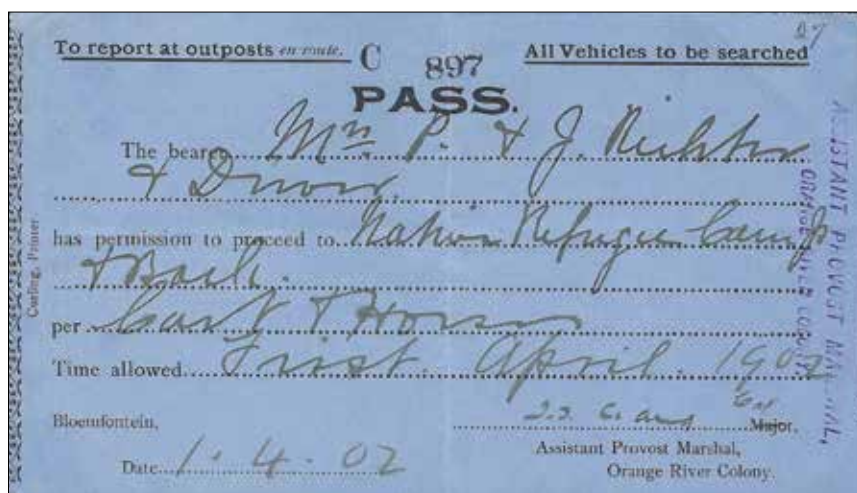 27
To report at outposts en route. C 897 All Vehicles to be searched
PASS.
The bearer Mr. P. & J. Richter
& Driver.
has permission to proceed to Native Refugee Camp
& Back.
per Cart & Horses
Time allowed First. April. 1902
Bloemfontein,
Major,
Assistant Provost Marshal,
Orange River Colony.
Date 1. 4. 02
Curling, Printer.
ASSISTANT PROVOST MARSHAL,
ORANGE RIVER COLONY.